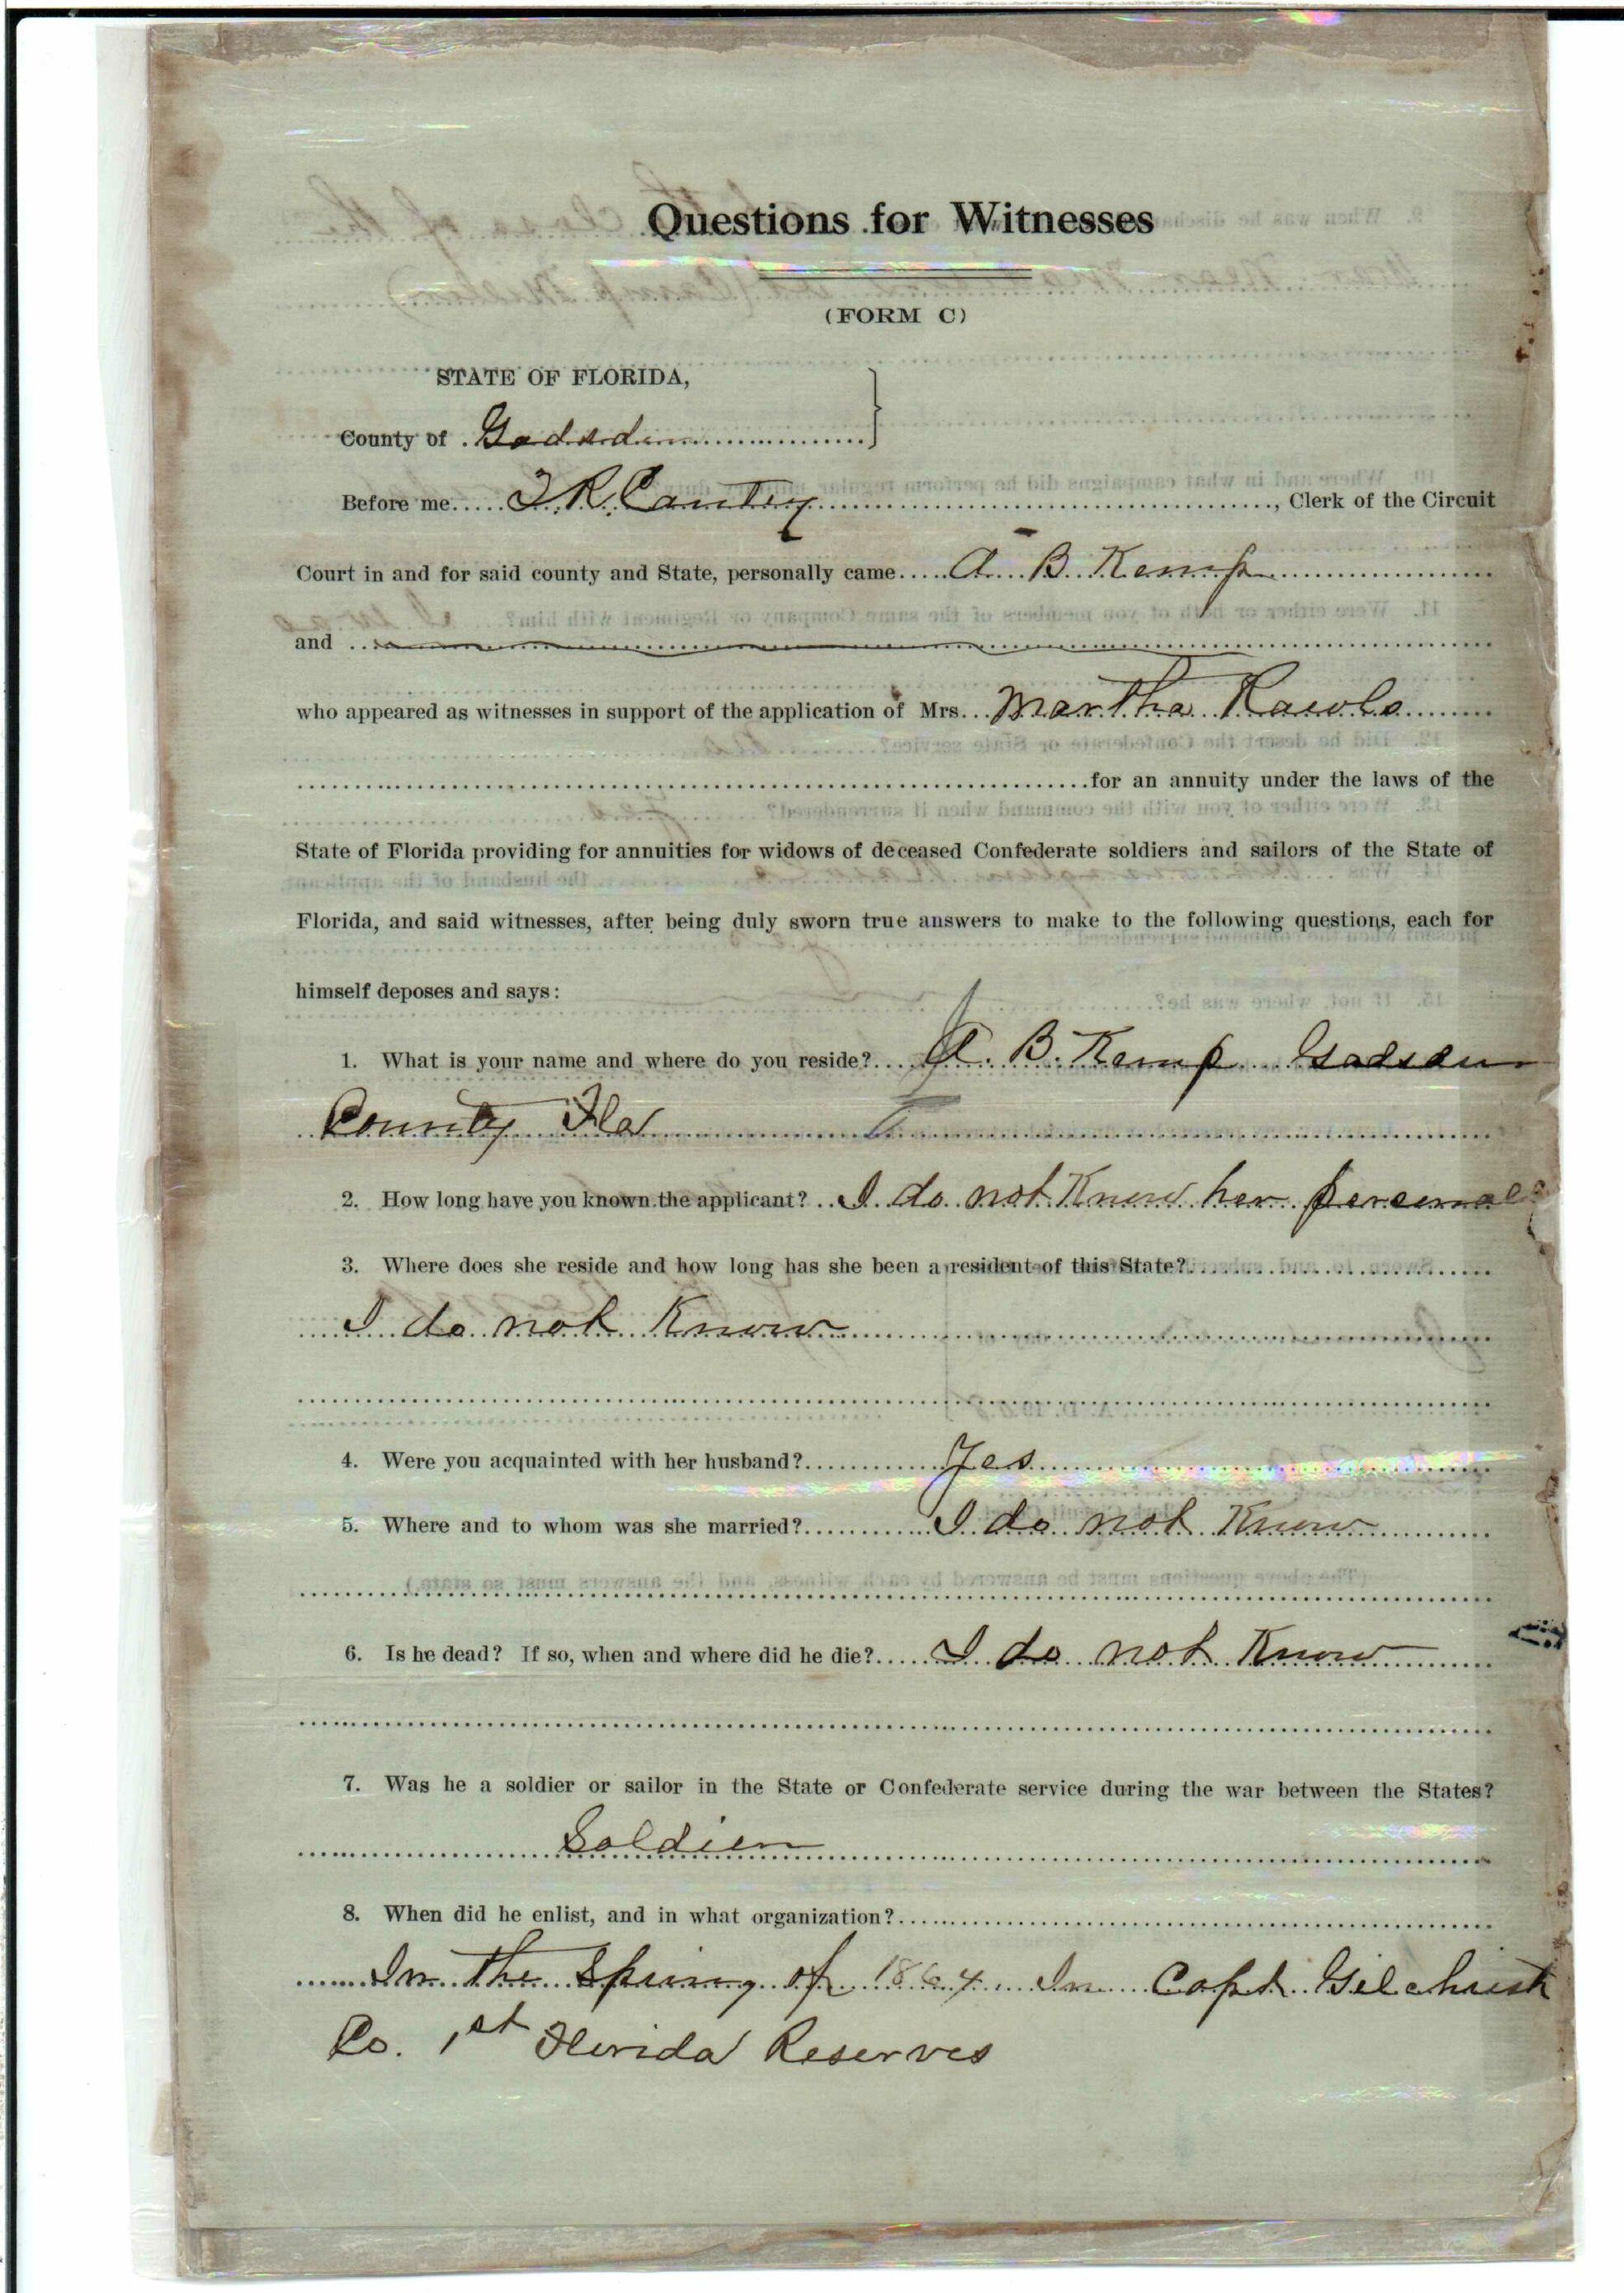 Questions for Witnesses
(FORM C)
STATE OF FLORIDA,
County of Gadsden
Before me T. R. Cantey, Clerk of the Circuit
Court in and for said county and State, personally came A B Kemp
and
who appeared as witnesses in support of the application of Mrs. Martha Rawls
for an annuity under the laws of the
State of Florida providing for annuities for widows of deceased Confederate soldiers and sailors of the State of
Florida, and said witnesses, after being duly sworn true answers to make to the following questions, each for
himself deposes and says:
1. What is your name and where do you reside? A. B. Kemp Gadsden
County Fla
2. How long have you known the applicant? I do not Know her personal
3. Where does she reside and how long has she been a resident of this State?
I do not Know
4. Were you acquainted with her husband? Yes
5. Where and to whom was she married? I do not Know
6. Is he dead? If so, when and where did he die? I do not Know
7. Was he a soldier or sailor in the State or Confederate service during the war between the States?
Soldier
8. When did he enlist, and in what organization?
In the Spring of 1864 In Capt Gilchrist
Co. 1st Florida Reserves